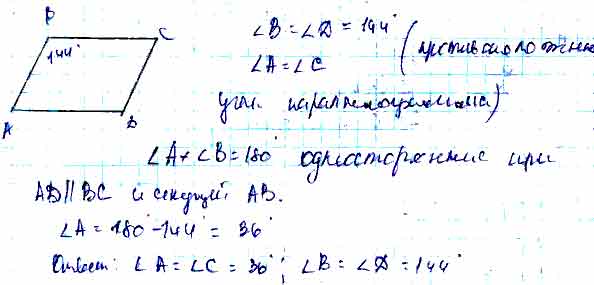 B
C
144°
A
D
∠B = ∠D = 144°
∠A = ∠C (противоположные
углы параллелограмма)
∠A + ∠B = 180° односторонние при
AD || BC и секущей AB.
∠A = 180° - 144° = 36°
Ответ: ∠A = ∠C = 36°; ∠B = ∠D = 144°